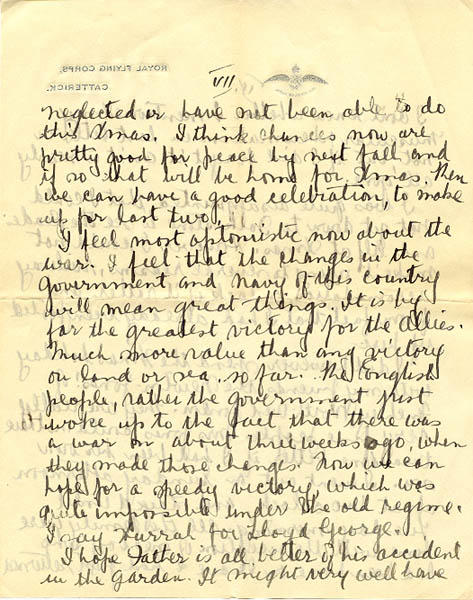 ROYAL FLYING CORPS,
CATTERICK.
VII.
neglected or have not been able to do
this Xmas. I think chances now are
pretty good for peace by next fall and
if so that will be home for Xmas. Then
we can have a good celebration, to make
up for last two,
I feel most optomistic now about the
war. I feel that the changes in the
government and navy of this country
will mean great things. It is by
far the greatest victory for the allies.
Much more value than any victory
on land or sea so far. The English
people, rather the government just
woke up to the fact that there was
a war on about three weeks ago, when
they made those changes. Now we can
hope for a speedy victory, which was
quite impossible under the old regime.
I say Hurrah for Lloyd George.
I hope Father is all better of his accident
in the Garden. It might very well have